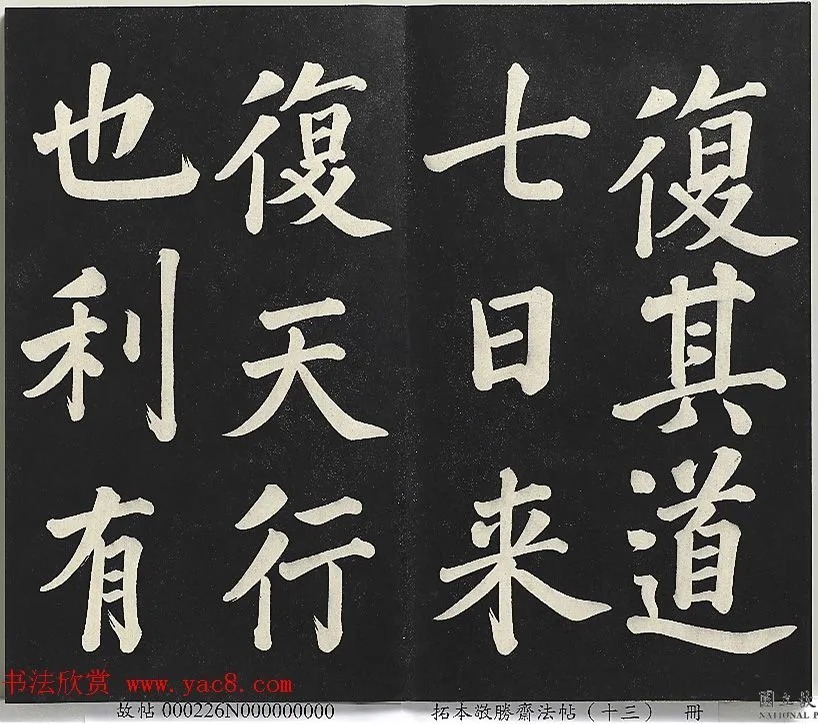 復其道
七日来
復天行
也利有
书法欣赏 www.yac8.com
故帖 000226N000000000
拓本敬勝齋法帖（十三） 冊
國立故
NATIONAL P